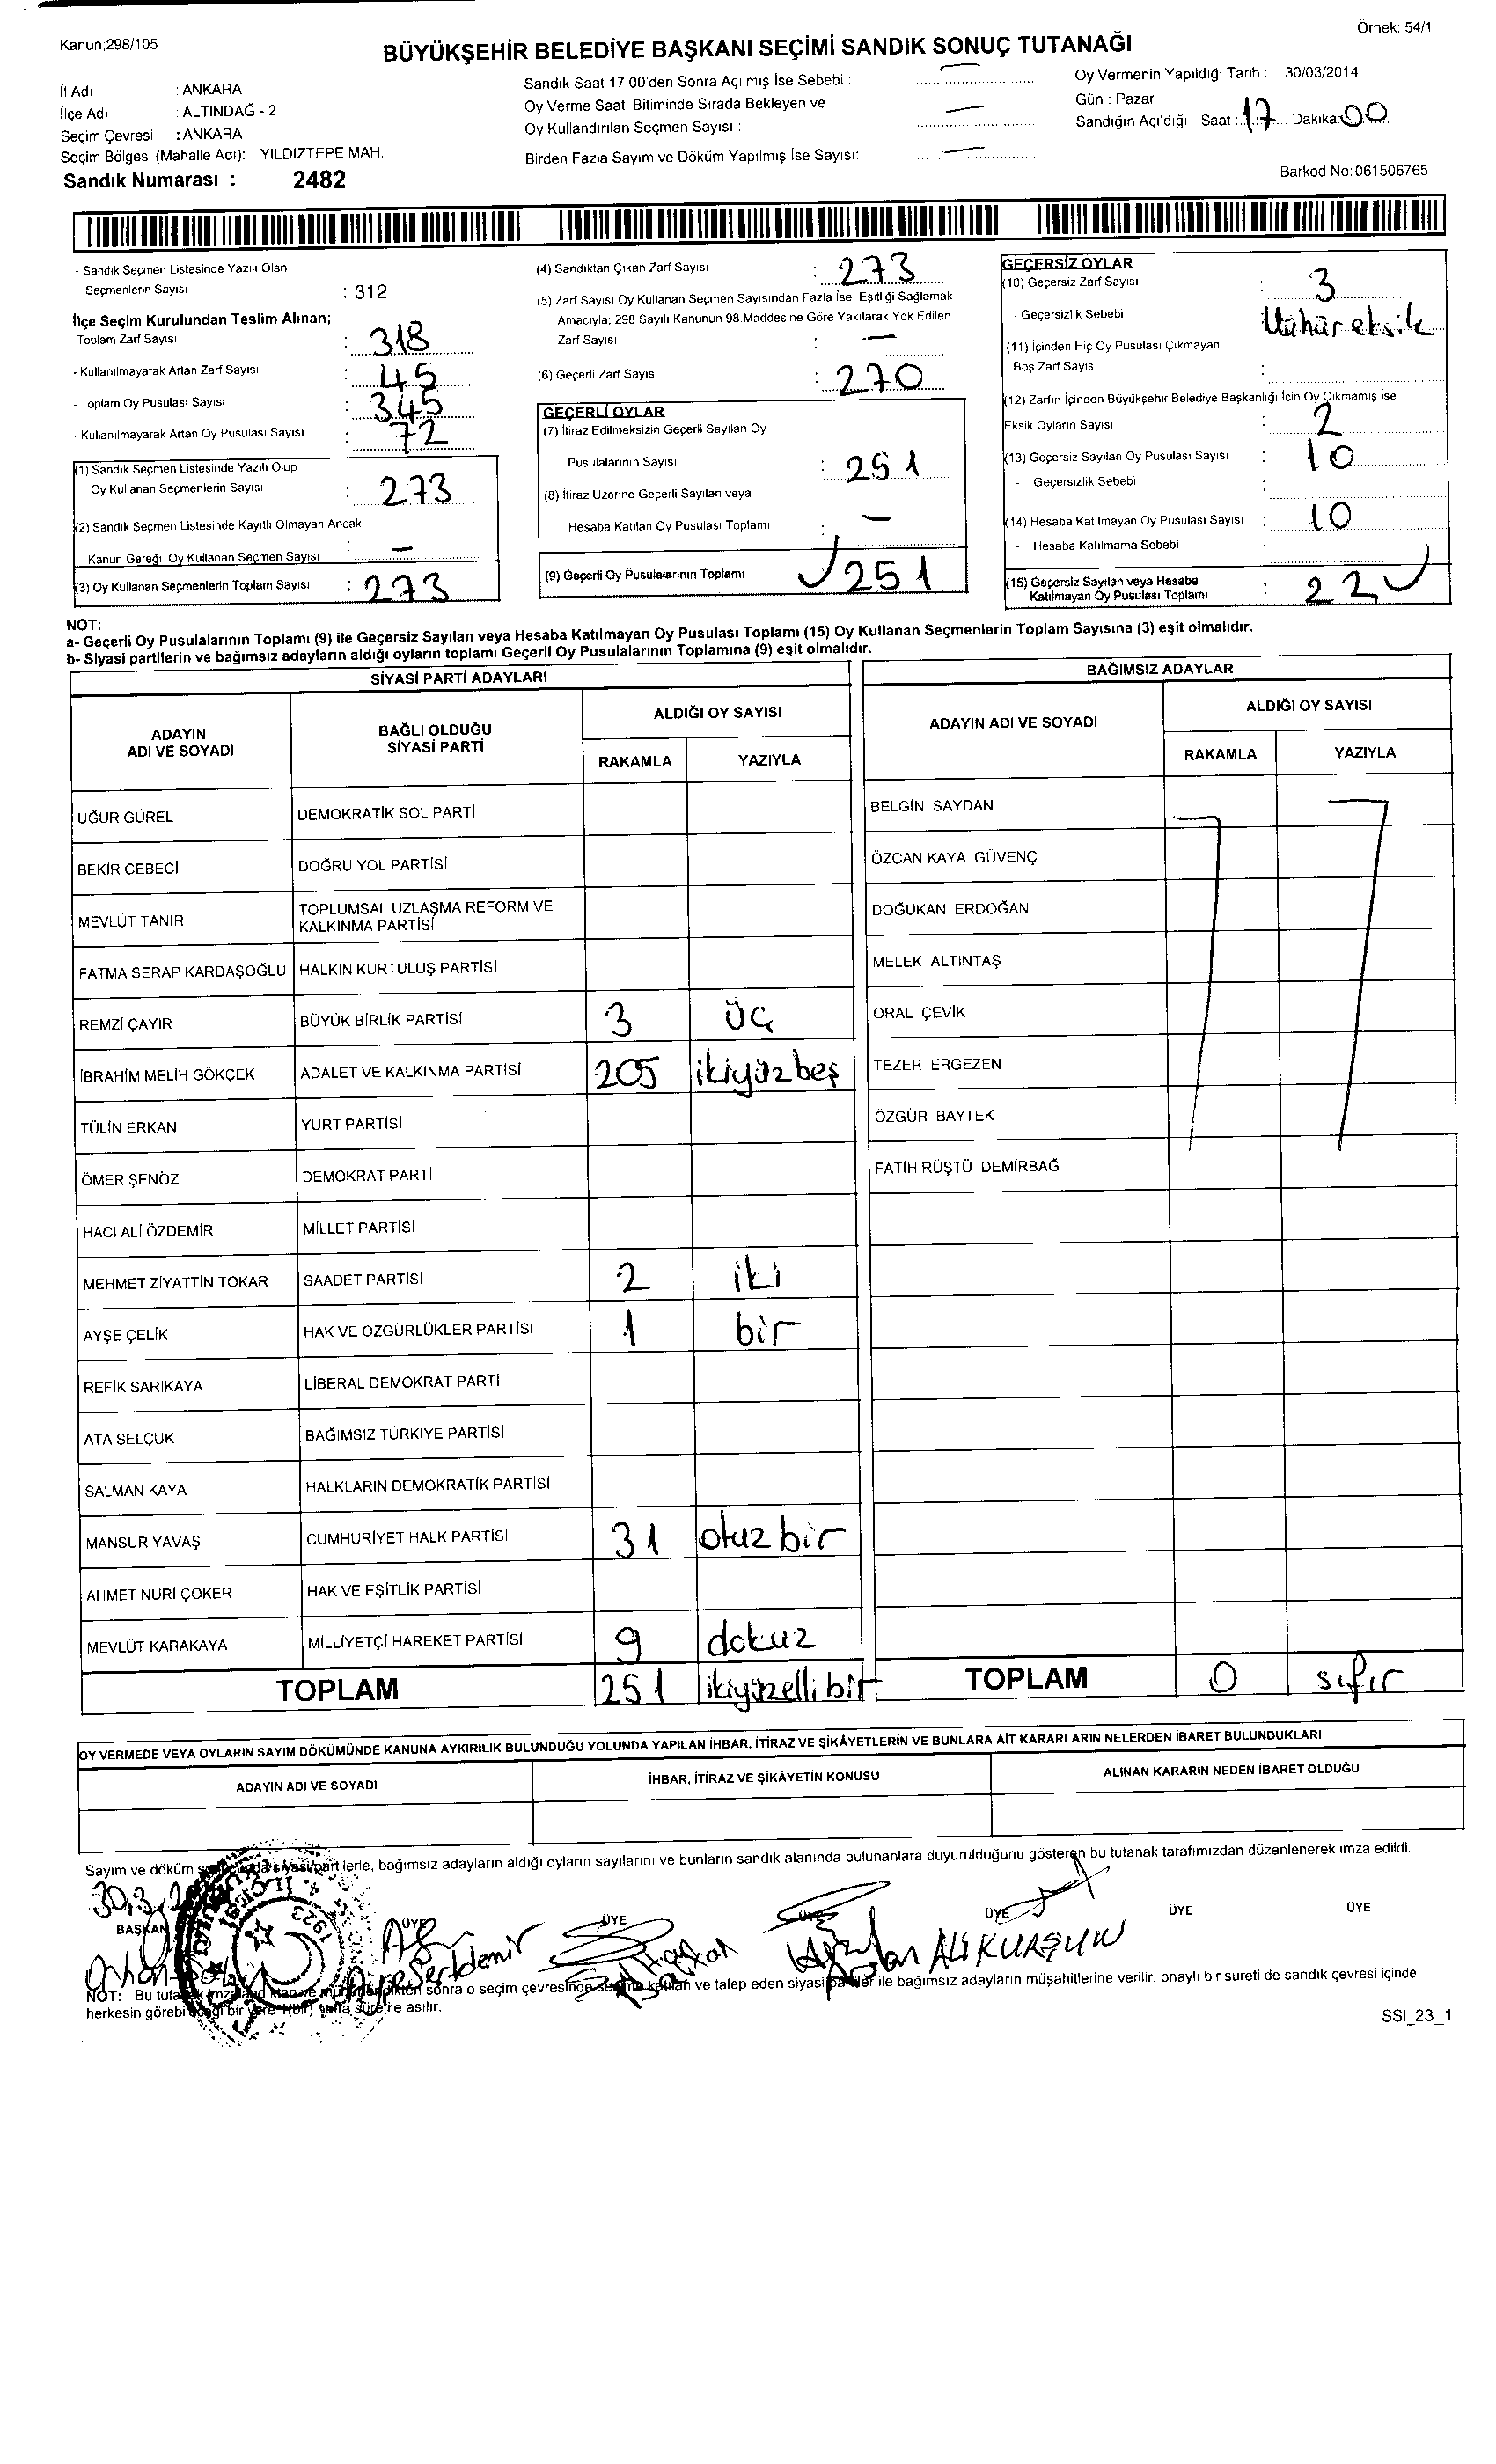 Kanun;298/105
Örnek: 54/1
BÜYÜKŞEHİR BELEDİYE BAŞKANI SEÇİMİ SANDIK SONUÇ TUTANAĞI
İl Adı : ANKARA
İlçe Adı : ALTINDAĞ - 2
Seçim Çevresi : ANKARA
Seçim Bölgesi (Mahalle Adı): YILDIZTEPE MAH.
Sandık Numarası : 2482
Sandık Saat 17.00'den Sonra Açılmış İse Sebebi :
Oy Verme Saati Bitiminde Sırada Bekleyen ve
Oy Kullandırılan Seçmen Sayısı :
Birden Fazla Sayım ve Döküm Yapılmış İse Sayısı:
Oy Vermenin Yapıldığı Tarih : 30/03/2014
Gün : Pazar
Sandığın Açıldığı Saat : 17 Dakika: 00
Barkod No:061506765
- Sandık Seçmen Listesinde Yazılı Olan
Seçmenlerin Sayısı : 312
İlçe Seçim Kurulundan Teslim Alınan;
-Toplam Zarf Sayısı : 318
- Kullanılmayarak Artan Zarf Sayısı : 45
- Toplam Oy Pusulası Sayısı : 345
- Kullanılmayarak Artan Oy Pusulası Sayısı : 72
(1) Sandık Seçmen Listesinde Yazılı Olup
Oy Kullanan Seçmenlerin Sayısı : 273
(2) Sandık Seçmen Listesinde Kayıtlı Olmayan Ancak
Kanun Gereği Oy Kullanan Seçmen Sayısı : -
(3) Oy Kullanan Seçmenlerin Toplam Sayısı : 273
(4) Sandıktan Çıkan Zarf Sayısı : 273
(5) Zarf Sayısı Oy Kullanan Seçmen Sayısından Fazla İse, Eşitliği Sağlamak
Amacıyla; 298 Sayılı Kanunun 98.Maddesine Göre Yakılarak Yok Edilen
Zarf Sayısı : -
(6) Geçerli Zarf Sayısı : 270
GEÇERLİ OYLAR
(7) İtiraz Edilmeksizin Geçerli Sayılan Oy
Pusulalarının Sayısı : 251
(8) İtiraz Üzerine Geçerli Sayılan veya
Hesaba Katılan Oy Pusulası Toplamı : -
(9) Geçerli Oy Pusulalarının Toplamı 251
GEÇERSİZ OYLAR
(10) Geçersiz Zarf Sayısı : 3
- Geçersizlik Sebebi Mühür eksik
(11) İçinden Hiç Oy Pusulası Çıkmayan
Boş Zarf Sayısı :
(12) Zarfın İçinden Büyükşehir Belediye Başkanlığı İçin Oy Çıkmamış İse
Eksik Oyların Sayısı : 2
(13) Geçersiz Sayılan Oy Pusulası Sayısı : 10
- Geçersizlik Sebebi :
(14) Hesaba Katılmayan Oy Pusulası Sayısı : 10
- Hesaba Katılmama Sebebi :
(15) Geçersiz Sayılan veya Hesaba
Katılmayan Oy Pusulası Toplamı : 22
NOT:
a- Geçerli Oy Pusulalarının Toplamı (9) ile Geçersiz Sayılan veya Hesaba Katılmayan Oy Pusulası Toplamı (15) Oy Kullanan Seçmenlerin Toplam Sayısına (3) eşit olmalıdır.
b- Siyasi partilerin ve bağımsız adayların aldığı oyların toplamı Geçerli Oy Pusulalarının Toplamına (9) eşit olmalıdır.
SİYASİ PARTİ ADAYLARI
ADAYIN ADI VE SOYADI
BAĞLI OLDUĞU SİYASİ PARTİ
ALDIĞI OY SAYISI
RAKAMLA YAZIYLA
UĞUR GÜREL DEMOKRATİK SOL PARTİ
BEKİR CEBECİ DOĞRU YOL PARTİSİ
MEVLÜT TANIR TOPLUMSAL UZLAŞMA REFORM VE KALKINMA PARTİSİ
FATMA SERAP KARDAŞOĞLU HALKIN KURTULUŞ PARTİSİ
REMZİ ÇAYIR BÜYÜK BİRLİK PARTİSİ 3 üç
İBRAHİM MELİH GÖKÇEK ADALET VE KALKINMA PARTİSİ 205 ikiyüzbeş
TÜLİN ERKAN YURT PARTİSİ
ÖMER ŞENÖZ DEMOKRAT PARTİ
HACI ALİ ÖZDEMİR MİLLET PARTİSİ
MEHMET ZİYATTİN TOKAR SAADET PARTİSİ 2 iki
AYŞE ÇELİK HAK VE ÖZGÜRLÜKLER PARTİSİ 1 bir
REFİK SARIKAYA LİBERAL DEMOKRAT PARTİ
ATA SELÇUK BAĞIMSIZ TÜRKİYE PARTİSİ
SALMAN KAYA HALKLARIN DEMOKRATİK PARTİSİ
MANSUR YAVAŞ CUMHURİYET HALK PARTİSİ 31 otuzbir
AHMET NURİ ÇOKER HAK VE EŞİTLİK PARTİSİ
MEVLÜT KARAKAYA MİLLİYETÇİ HAREKET PARTİSİ 9 dokuz
TOPLAM 251 ikiyüzellibir
BAĞIMSIZ ADAYLAR
ADAYIN ADI VE SOYADI
ALDIĞI OY SAYISI
RAKAMLA YAZIYLA
BELGİN SAYDAN
ÖZCAN KAYA GÜVENÇ
DOĞUKAN ERDOĞAN
MELEK ALTINTAŞ
ORAL ÇEVİK
TEZER ERGEZEN
ÖZGÜR BAYTEK
FATİH RÜŞTÜ DEMİRBAĞ
TOPLAM 0 sıfır
OY VERMEDE VEYA OYLARIN SAYIM DÖKÜMÜNDE KANUNA AYKIRILIK BULUNDUĞU YOLUNDA YAPILAN İHBAR, İTİRAZ VE ŞİKÂYETLERİN VE BUNLARA AİT KARARLARIN NELERDEN İBARET BULUNDUKLARI
ADAYIN ADI VE SOYADI
İHBAR, İTİRAZ VE ŞİKÂYETİN KONUSU
ALINAN KARARIN NEDEN İBARET OLDUĞU
Sayım ve döküm siyasi partilerle, bağımsız adayların aldığı oyların sayılarını ve bunların sandık alanında bulunanlara duyurulduğunu gösteren bu tutanak tarafımızdan düzenlenerek imza edildi.
30.3
BAŞKAN ÜYE ÜYE ÜYE ÜYE ÜYE ÜYE
Orhan
Ayşe Sertdemir
Arslan ALİ KURŞUN
NOT: Bu tutanak imzalandıktan ve mühürlendikten sonra o seçim çevresinde seçime katılan ve talep eden siyasi partiler ile bağımsız adayların müşahitlerine verilir, onaylı bir sureti de sandık çevresi içinde
herkesin görebileceği bir yere 1(bir) hafta süre ile asılır.
SSI_23_1